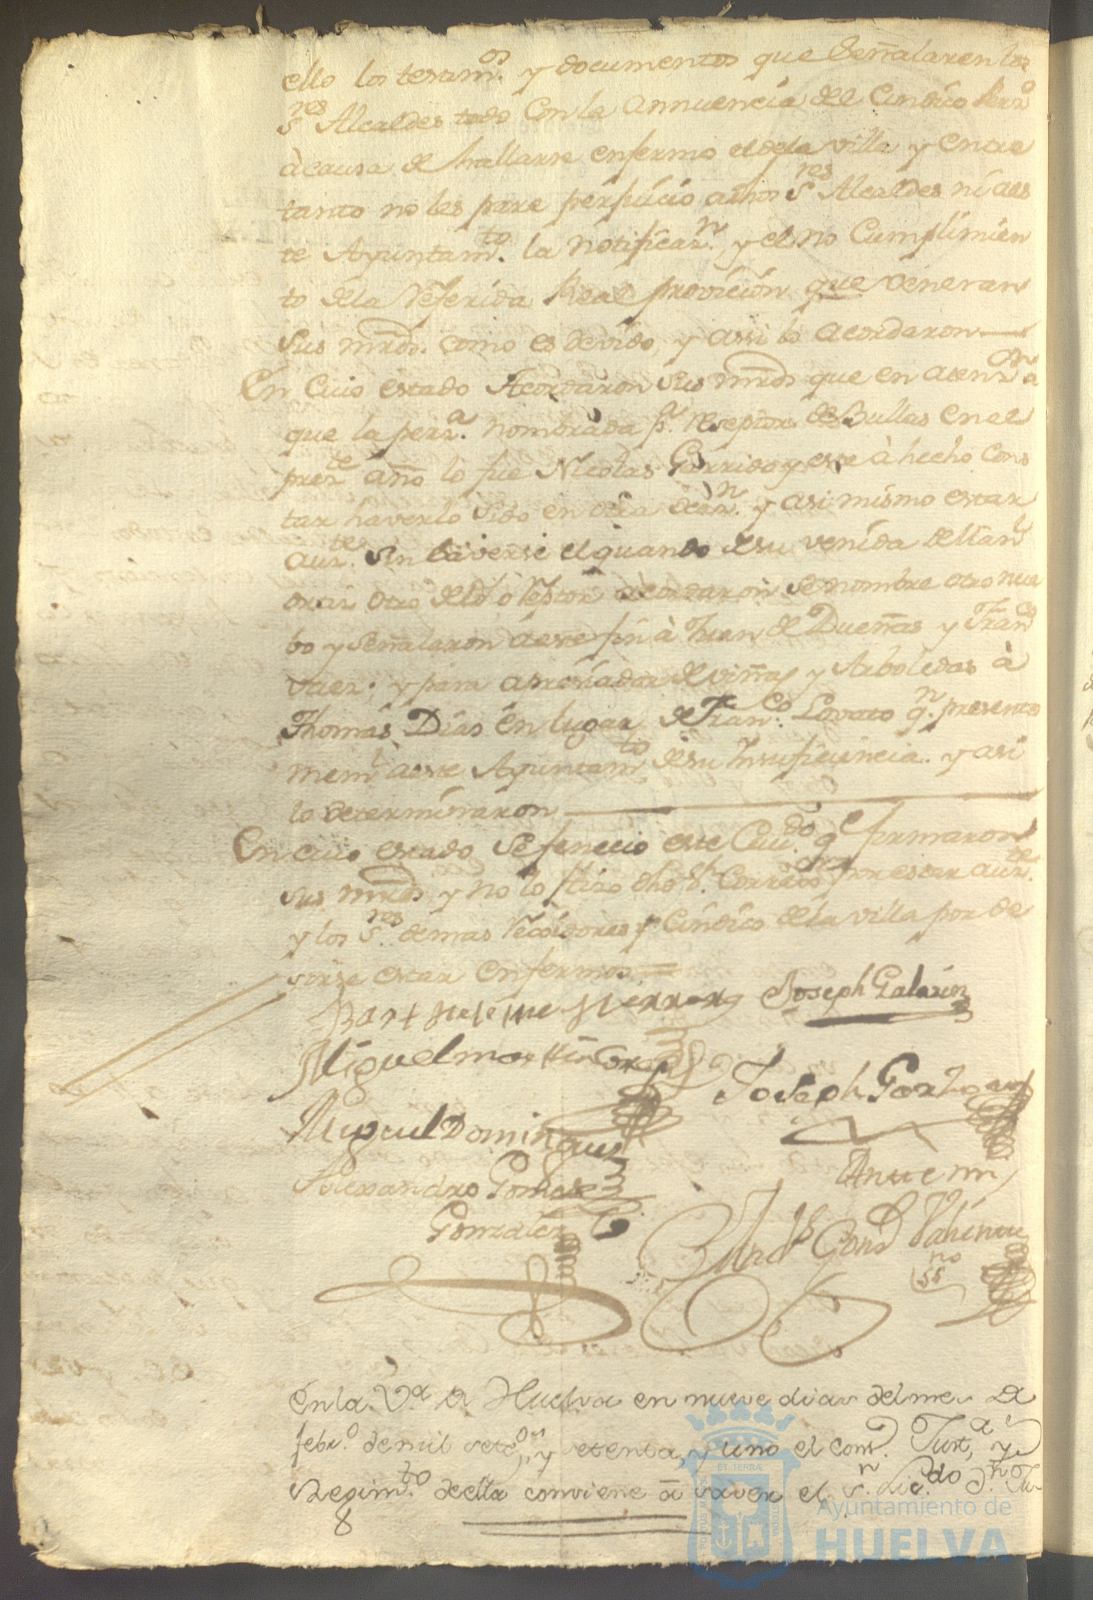 ello los testam.os y documentos que señalaren los
S.res Alcaldes todo con la annuencia del Cindico Perz.o
à causa de hallarse enfermo el de la villa y entre
tanto no les pare perjuicio a dhos S.res Alcaldes ni a es
te Ayuntam.to la notificaz.n y el no Cumplimien
to de la referida Real provicion que veneran
sus mrds. como es devido, y assi lo acordaron
En cuio estado Acordaron sus mrds que en atenz.on a
que la perz.a nombrada p.a Reseptor de Bullas en el
prez.te año lo fue Nicolas Garrido y este à hecho cons
tar haverlo sido en otra ocaz.n y asi mismo estar
auz.te sin saverse el quando de su venida
otro acordaron se nombre otro nue
bo y señalaron a este fin à Juan de Dueñas y Fran.co
Vaez; y para apreciador de viñas y Arboledas à
Thomas Dias en lugar de Fran.co Lovato q.n presento
mem.l a este Ayuntam.to de su Insuficiencia. y asi
lo determinaron
En cuio estado se fenecio este Cavi.do q.e firmaron
sus mrds y no lo hizo dho S.r Corre.or por estar auz.te
y los S.res demas Recidores y Cindico de la villa por de
sirse estar enfermos
Barthelome Herrera Joseph Galarin
Miguel Martin
Joseph Garzo
Miguel Dominguez
Ante mi
Alexandro Gomes
Gonzalez
ss.no
En la V.a de Huelva en nueve dias del mes de
febr.o de mil setec.os y setenta, y uno el con.o Just.a y
Regim.to de ella conviene a saver el S.r Lic.do D.n
8
Ayuntamiento de
HUELVA